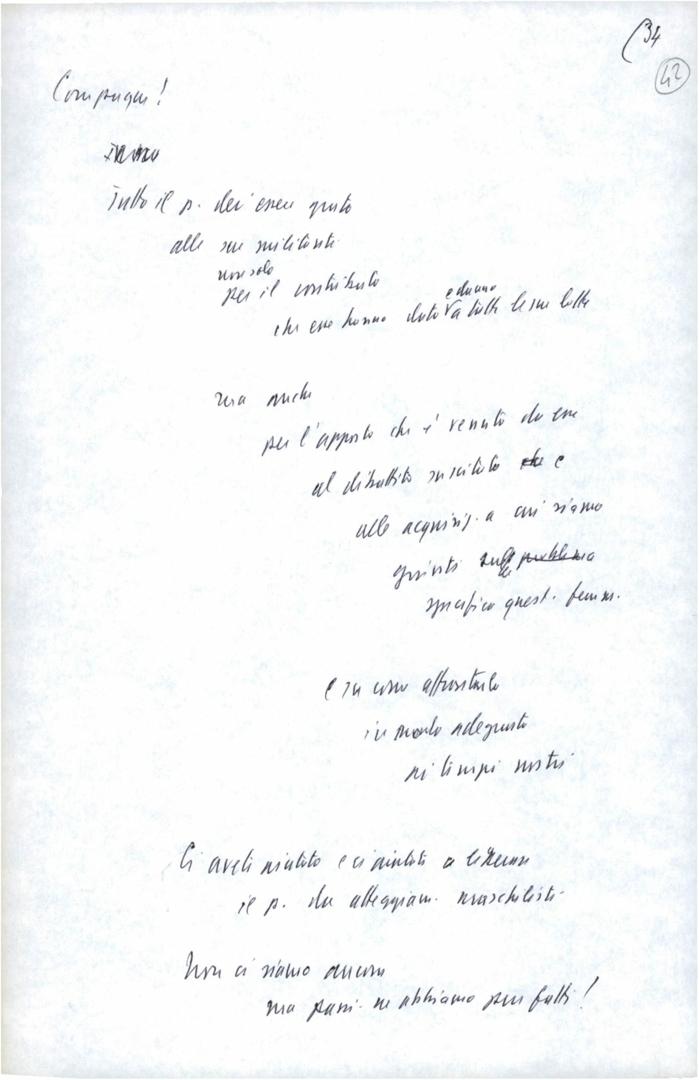 (34
42
Compagne!
Tutto il p. dev'essere grato
alle sue militanti
non solo
per il contributo
che esse hanno dato e danno a tutte le sue lotte
ma anche
per l'apporto che è venuto da esse
al dibattito suscitato che e
alle acquisiz. a cui siamo
giunti problema
specifica quest. femm.
e su come affrontarla
in modo adeguato
ai tempi nostri
Ci avete aiutato e ci aiutate a liberare
il p. da atteggiam. maschilisti
Non ci siamo ancora
ma passi ne abbiamo pur fatti!